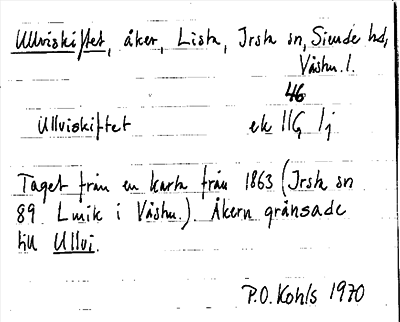 Ullviskiftet, åker, Lista, Irsta sn, Siende hd,
Västm. l.
46
Ullviskiftet ek 11G 1j
Taget från en karta från 1863 (Irsta sn
89 Lmk i Västm.). Åkern gränsade
till Ullvi.
P.O. Kohls 1970